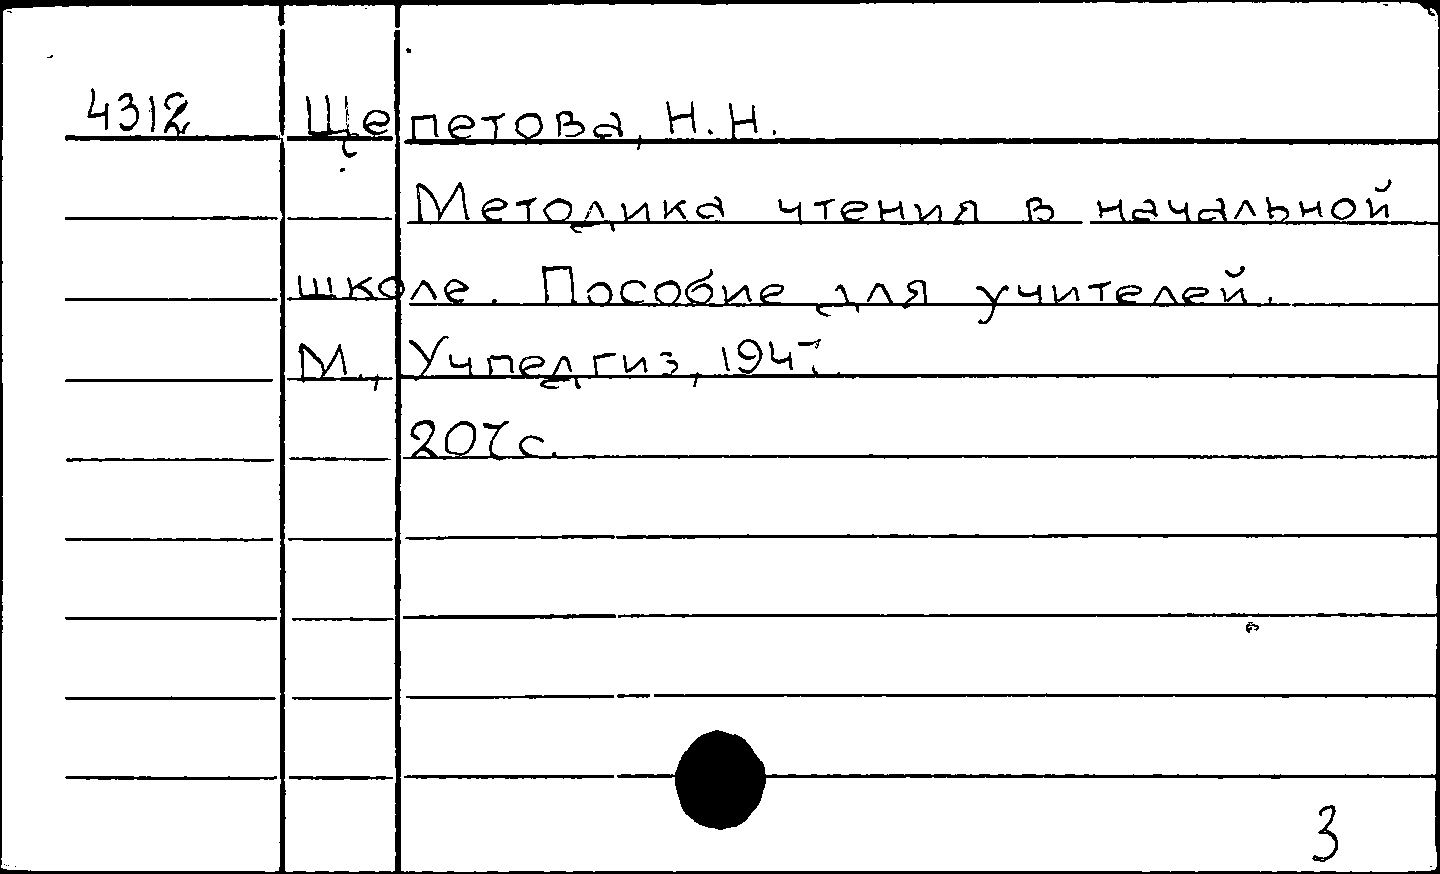 4312 Щепетова, Н. Н.
Методика чтения в начальной
школе. Пособие для учителей.
М., Учпедгиз, 1947.
207 с.
3